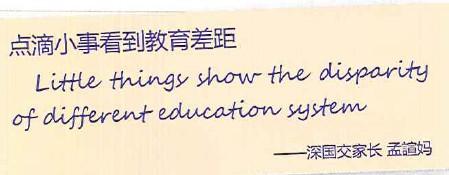 点滴小事看到教育差距
Little things show the disparity
of different education system
——深国交家长 孟諠妈